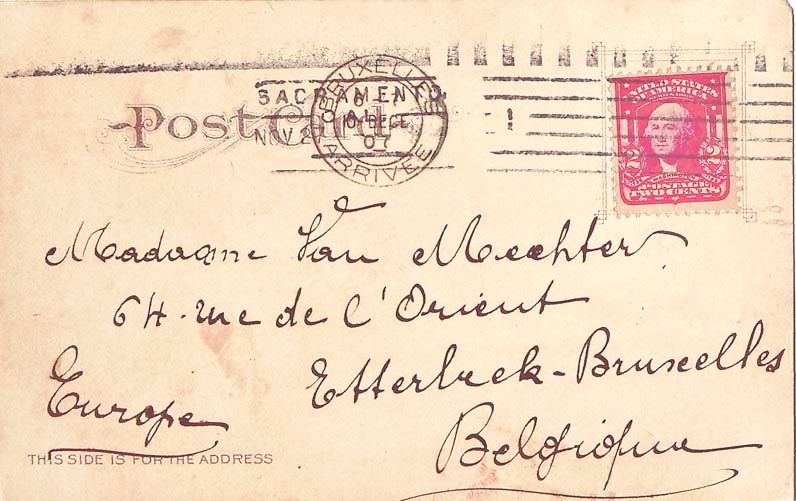 SACRAMENTO
Post Card
NOV 2
BRUXELLES
10 DECE
07
ARRIVEE
UNITED STATES
OF AMERICA
2 WASHINGTON 2
POSTAGE
TWO CENTS
Madame Van Mechter
64 · rue de l'Orient
Etterbeek-Bruxelles
Europe
Belgique
THIS SIDE IS FOR THE ADDRESS